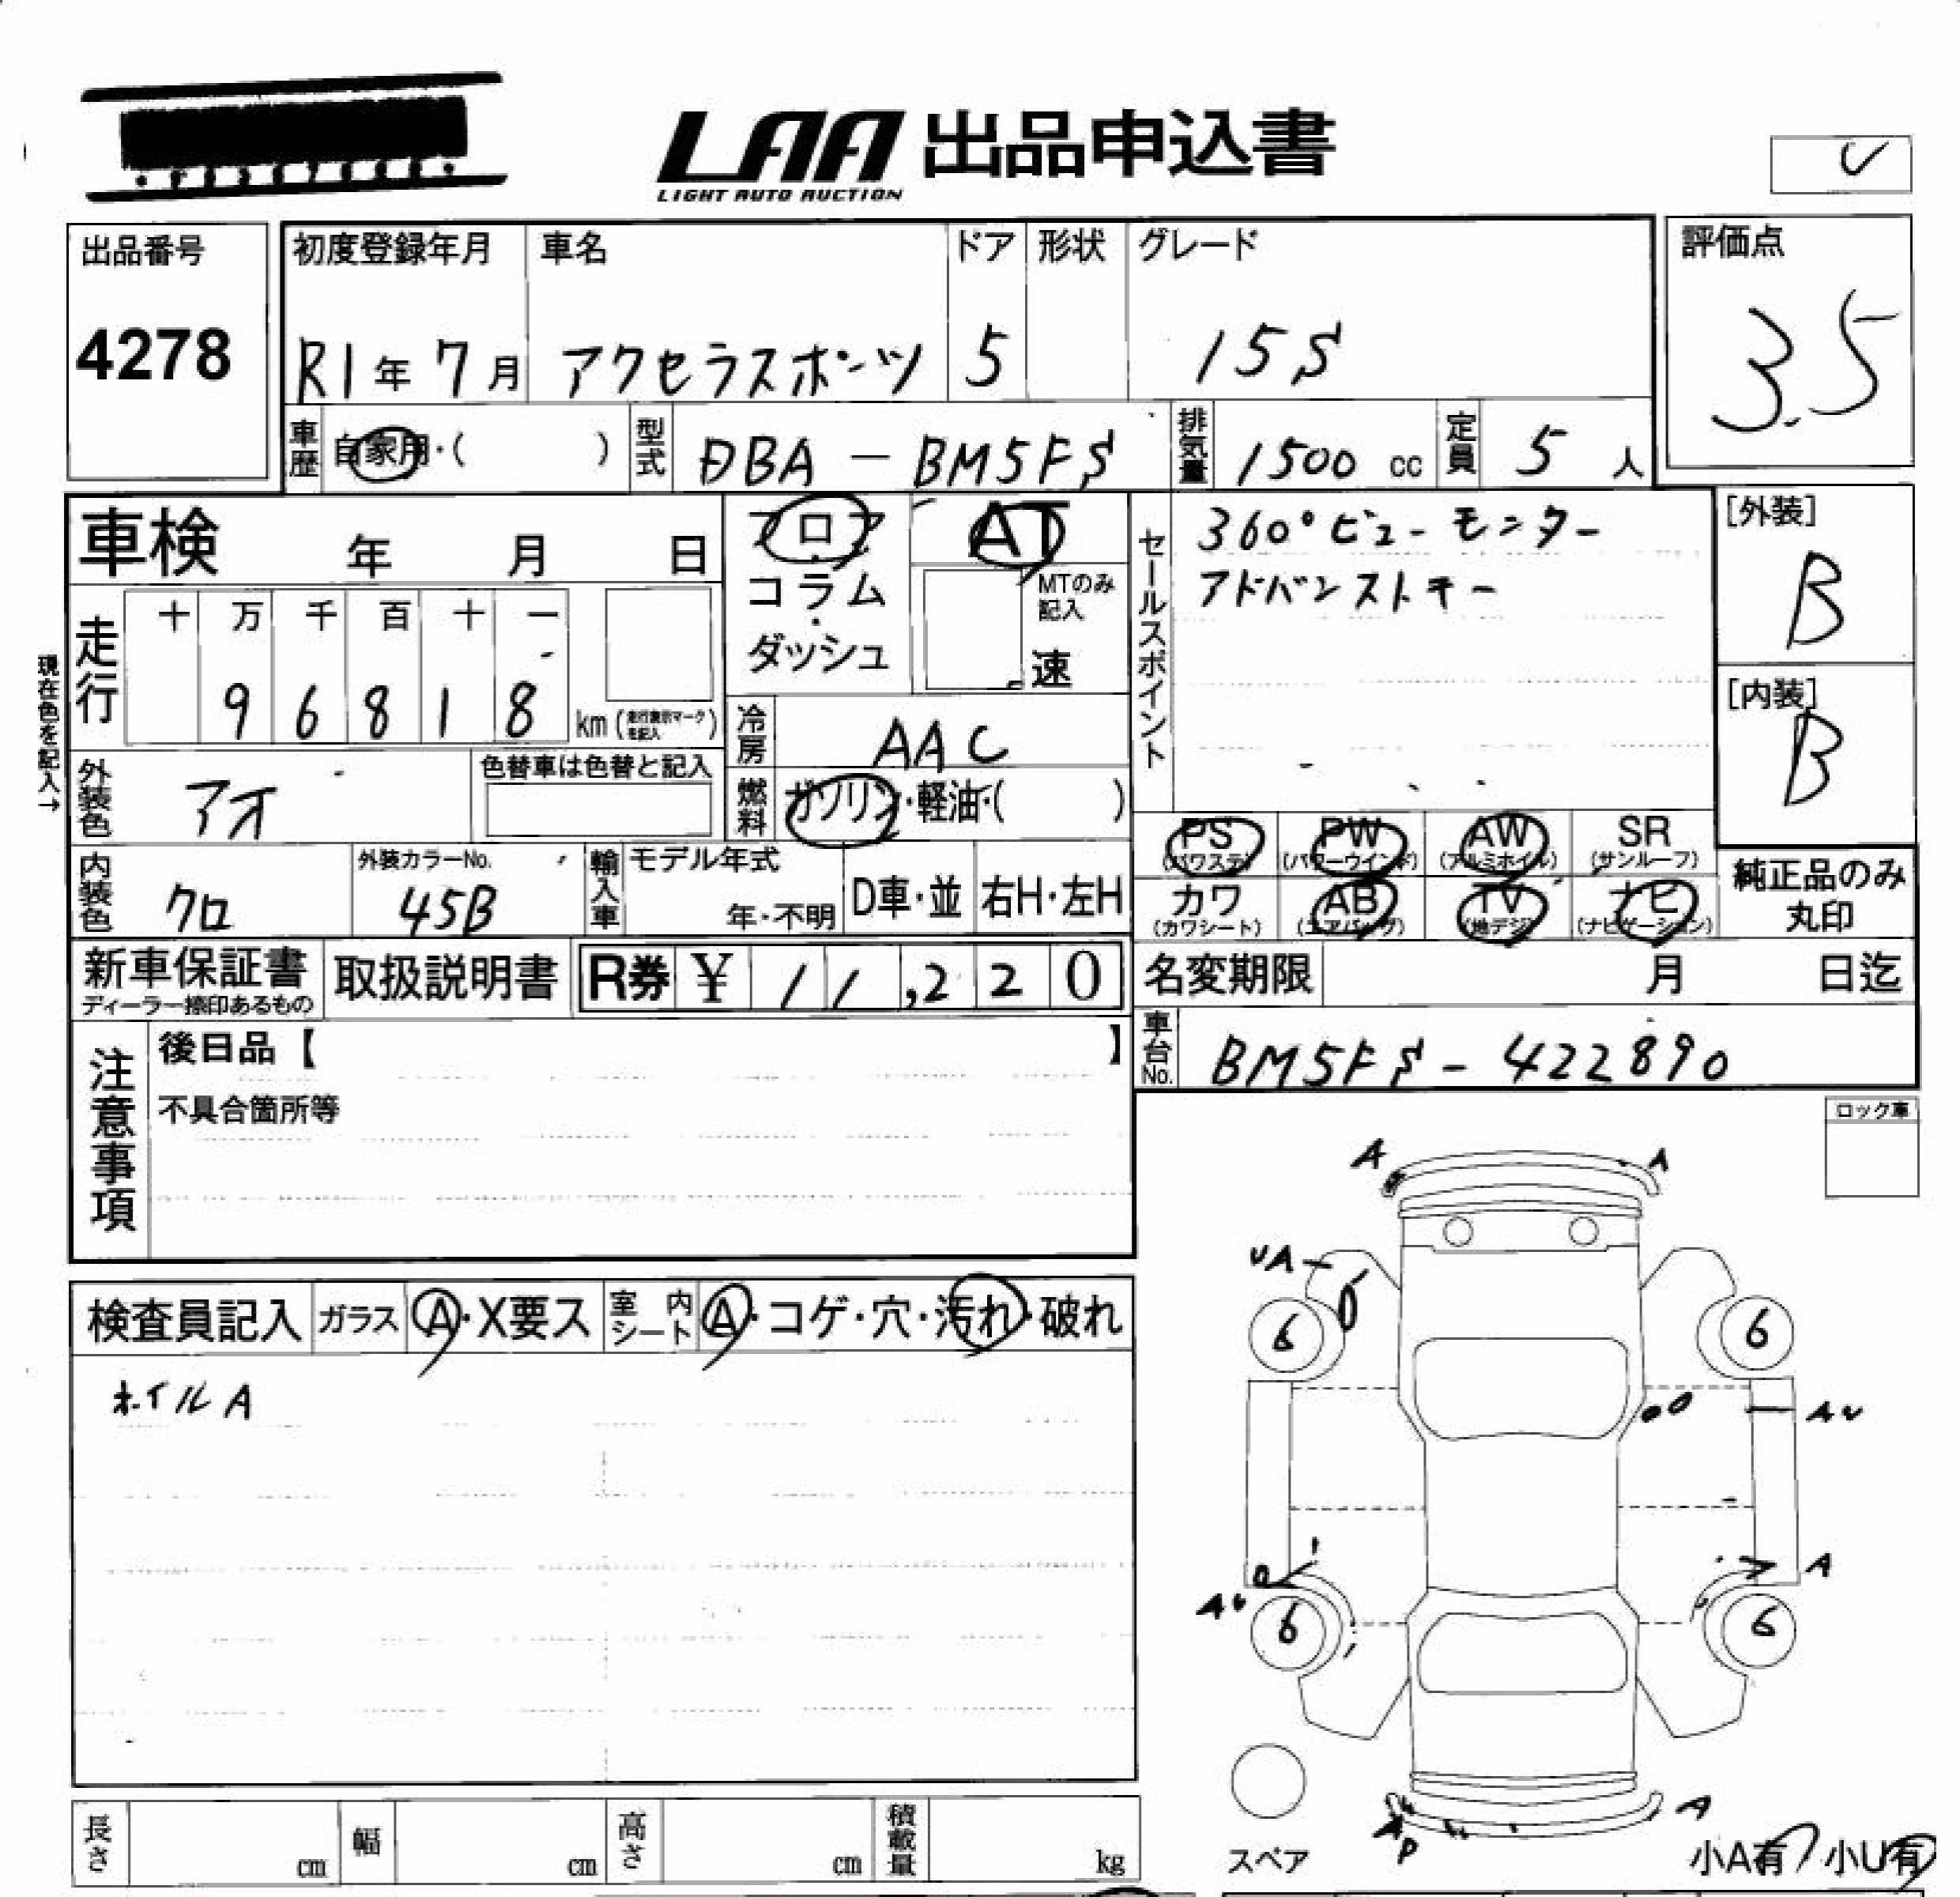 LAA 出品申込書
LIGHT AUTO AUCTION
出品番号
4278
初度登録年月 車名 ドア 形状 グレード
R1年 7月 アクセラスポーツ 5 15S
評価点
3.5
車歴 自家用・( ) 型式 DBA-BM5FS 排気量 1500 cc 定員 5 人
車検 年 月 日
フロア
コラム
ダッシュ
AT
MTのみ記入
速
セールスポイント
360°ビューモニター
アドバンストキー
[外装]
B
[内装]
B
現在色を記入→
走行 十 万 千 百 十 一
9 6 8 1 8 km (走行表示マークを記入)
冷房 AAC
外装色 アオ 色替車は色替と記入
燃料 ガソリン・軽油・( )
内装色 クロ 外装カラーNo. 45B
輸入車 モデル年式 年・不明 D車・並 右H・左H
PS (パワステ) PW (パワーウインド) AW (アルミホイル) SR (サンルーフ)
カワ (カワシート) AB (エアバッグ) TV (地デジ) ナビ (ナビゲーション)
純正品のみ
丸印
新車保証書
ディーラー捺印あるもの
取扱説明書
R券 ¥ 11,220
名変期限 月 日迄
車台No. BM5FS-422890
注意事項
後日品【 】
不具合箇所等
ロック車
検査員記入 ガラス A・X要ス 室内シート A・コゲ・穴・汚れ・破れ
ホイルA
A A
UA
6 6
AU
A
AU
6 6
A
AP
スペア
小A有 小U有
長さ cm 幅 cm 高さ cm 積載量 kg